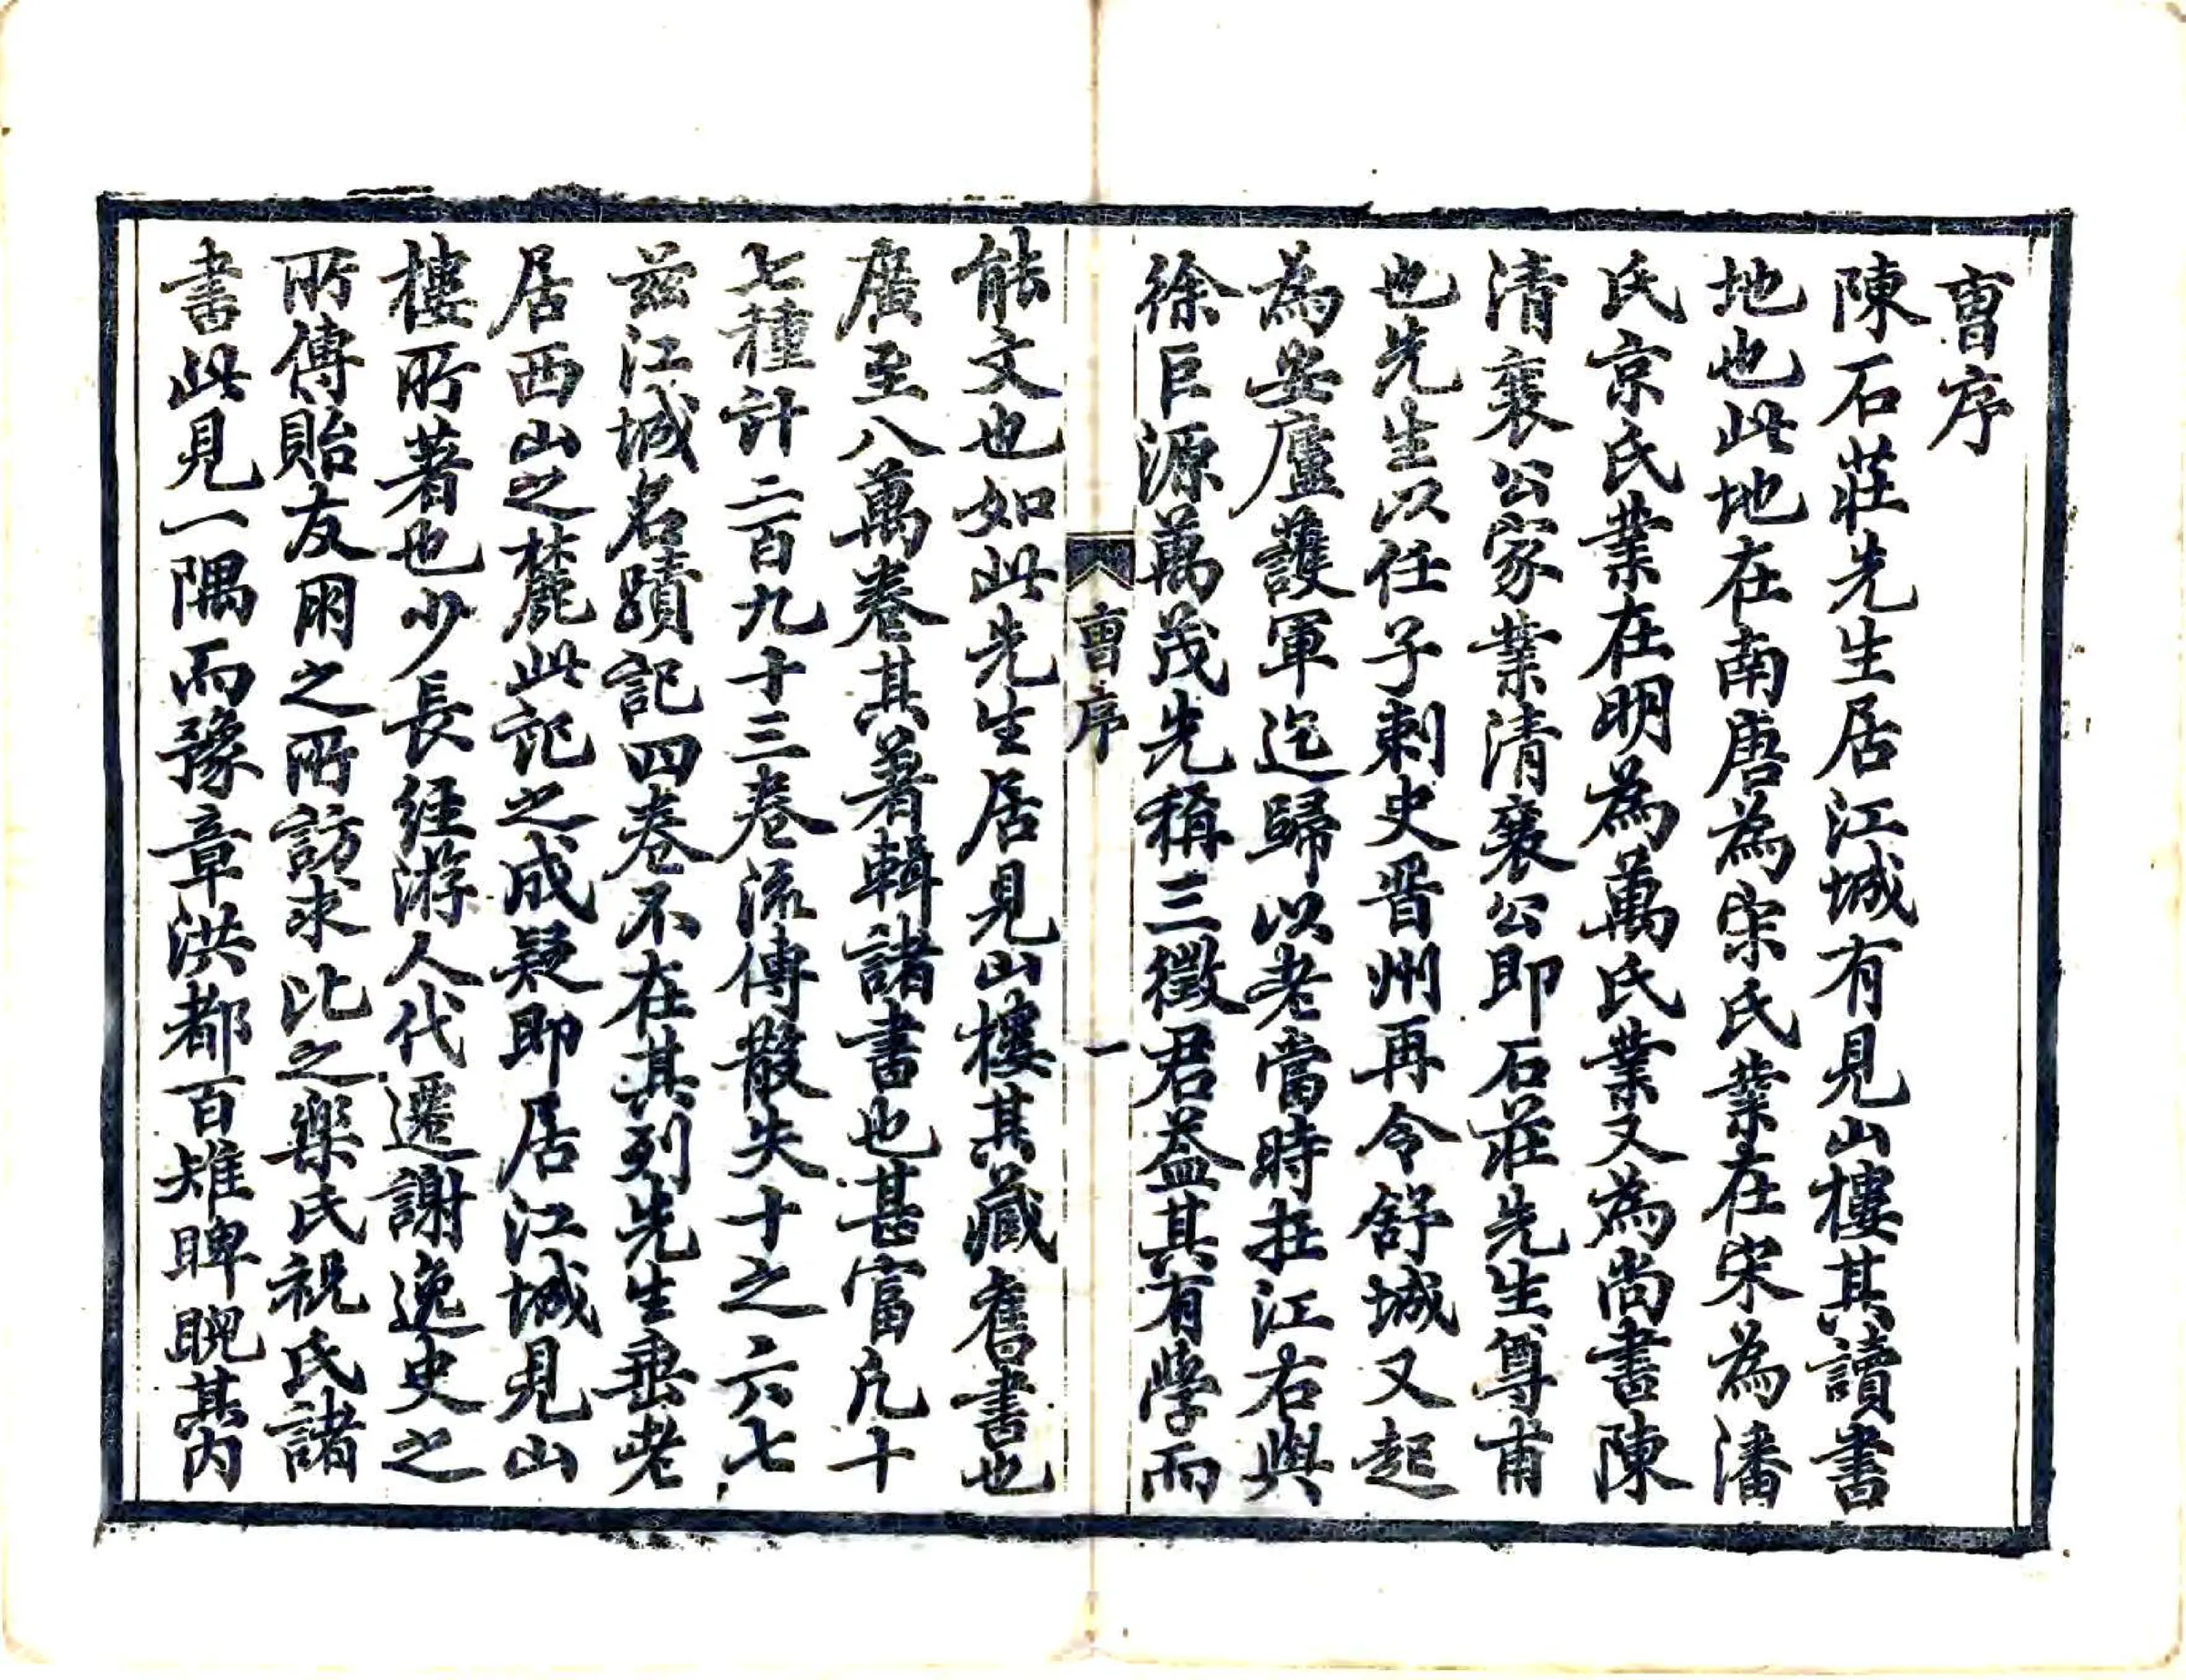 曺序
陳石莊先生居江城有見山樓其讀書
地也此地在南唐為宋氏業在宋為潘
氏京氏業在明為萬氏業又為尚書陳
清襄公家業清襄公即石莊先生尊甫
也先生以任子刺史晋州再令舒城又起
為安廬護軍迄歸以老當時在江右與
徐巨源萬茂先稱三徵君葢其有學而
曺序
一
能文也如此先生居見山樓其藏舊書也
廣至八萬卷其著輯諸書也甚富凡十
七種計二百九十三卷流傳散失十之六七
兹江城名蹟記四卷不在其列先生垂老
居西山之麓此記之成疑即居江城見山
樓所著也少長经游人代遷謝逸史之
所傳貽友朋之所訪求比之樂氏祝氏諸
書此見一隅而豫章洪都百雉睥睨其内